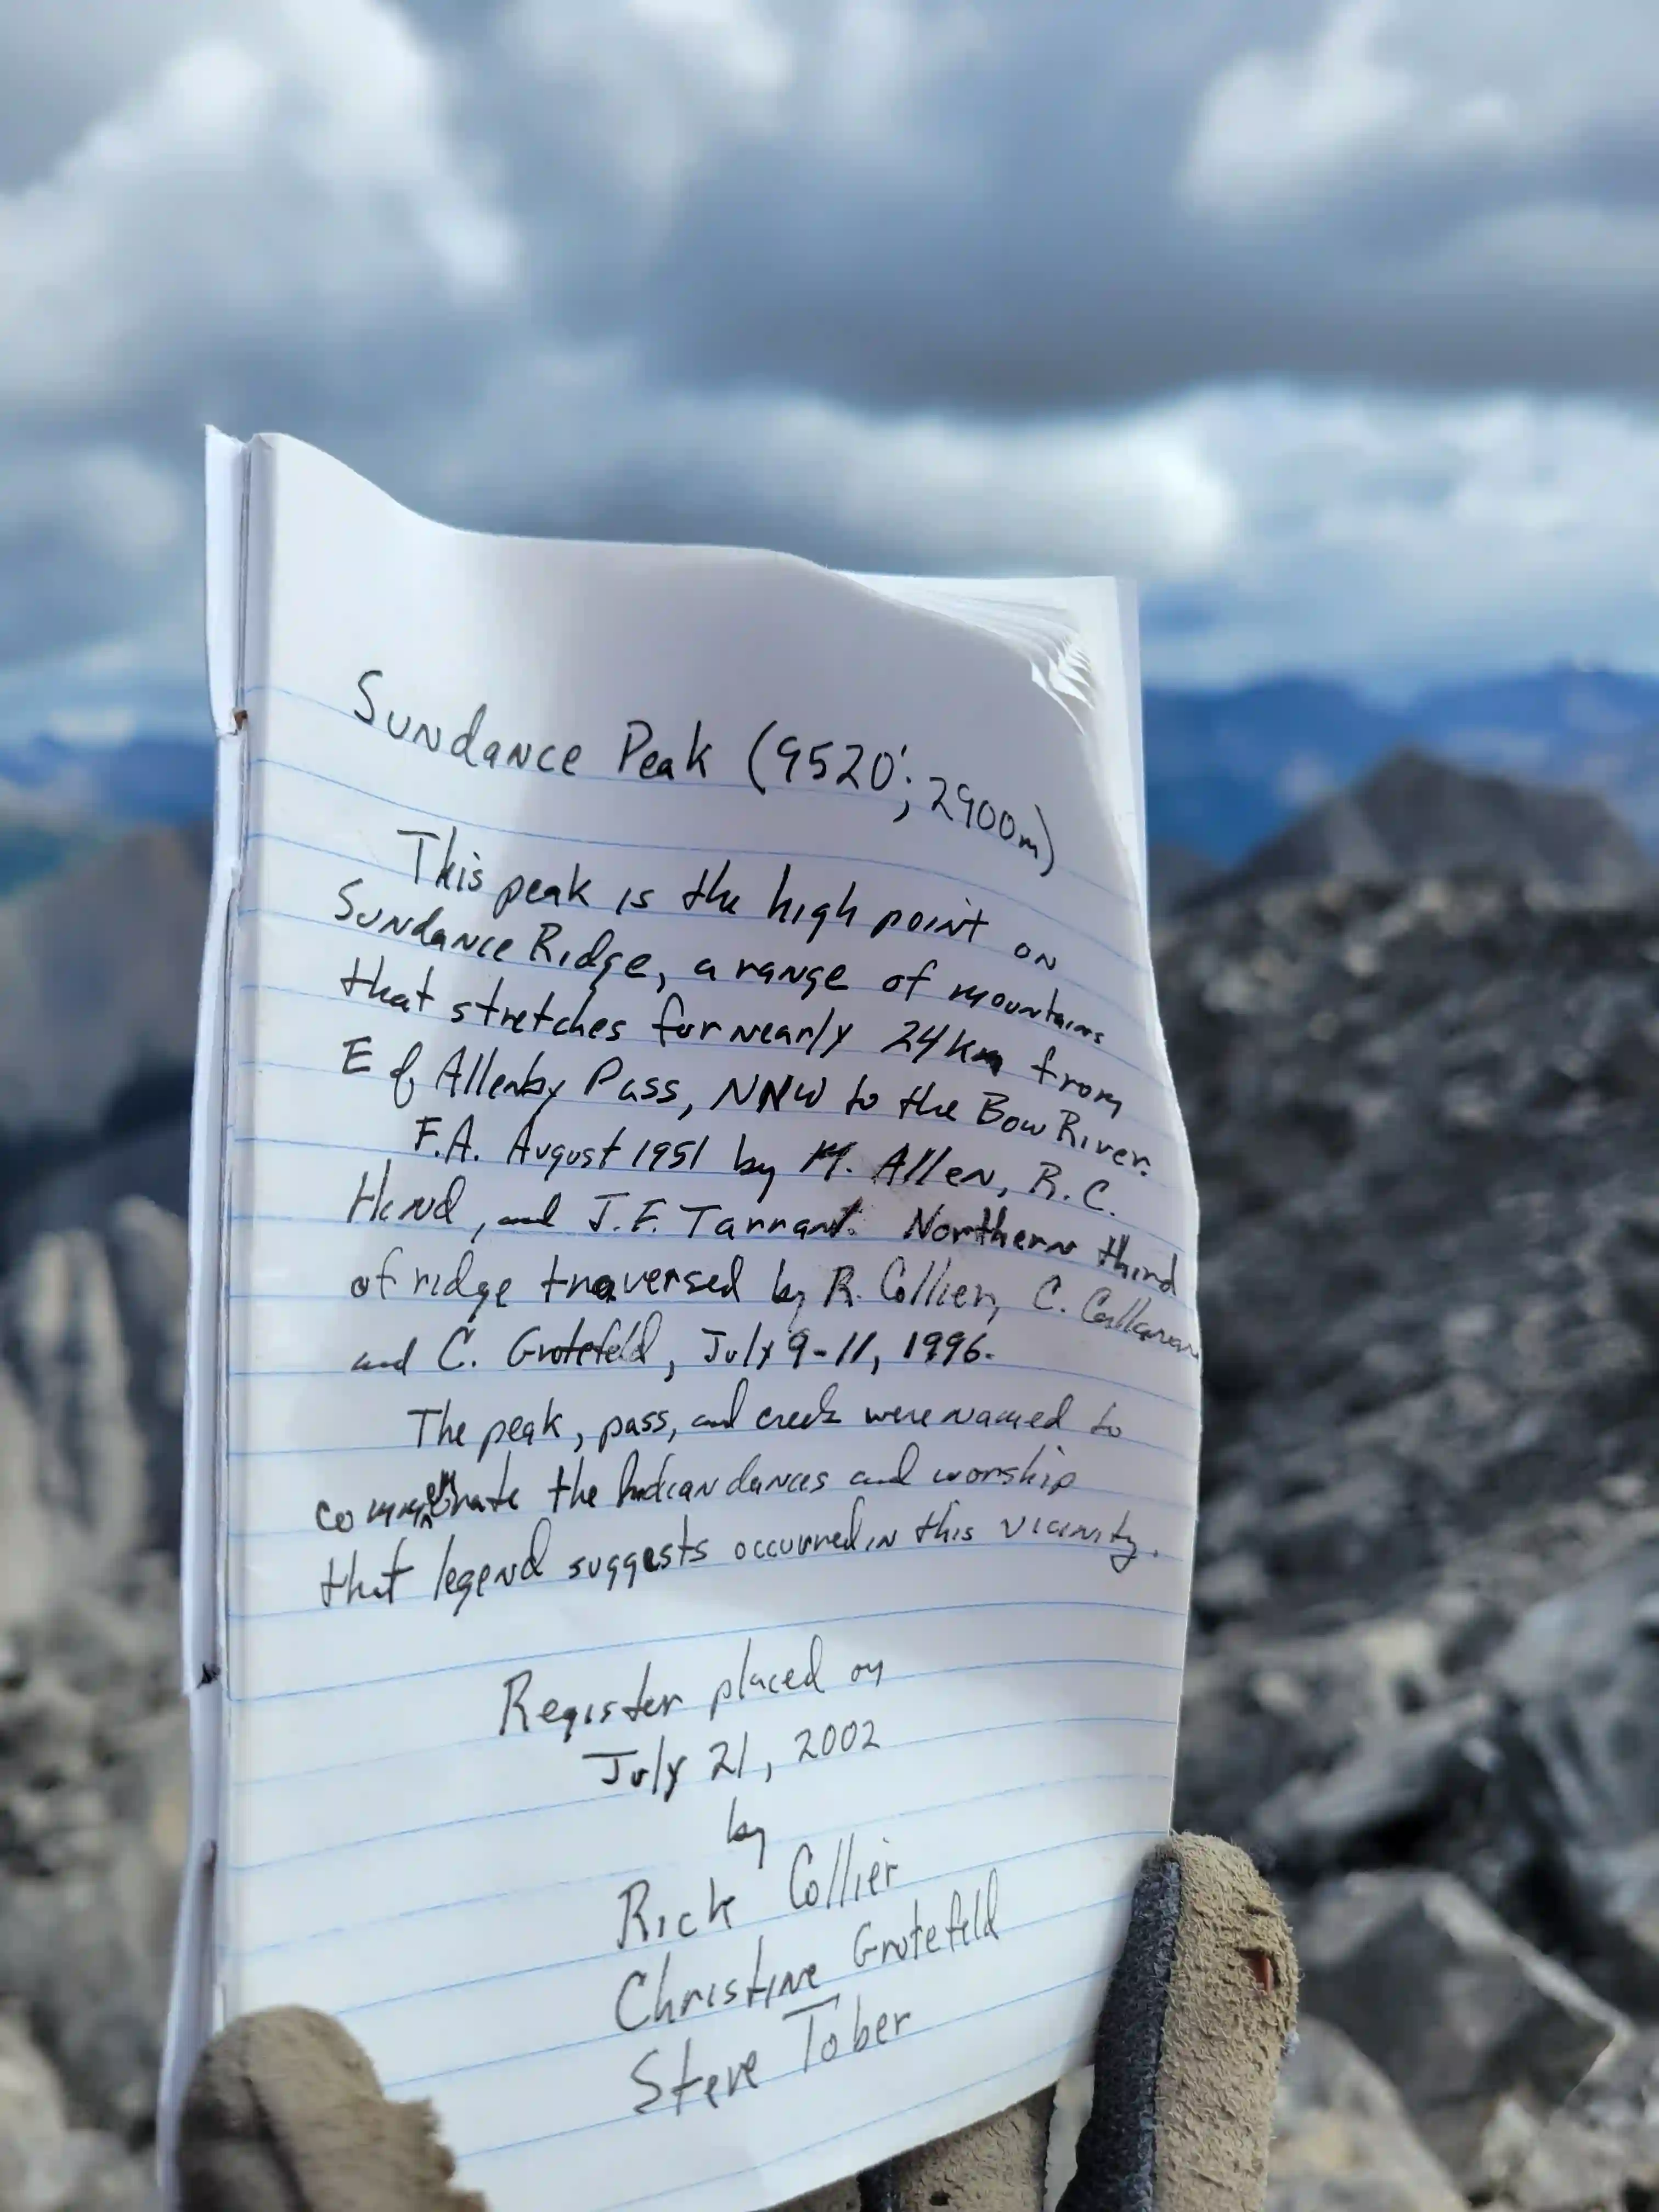 Sundance Peak (9520'; 2900m)
This peak is the high point on
Sundance Ridge, a range of mountains
that stretches for nearly 24km from
E of Allenby Pass, NNW to the Bow River.
F.A. August 1951 by M. Allen, R.C.
Hind, and J.F. Tarrant. Northern third
of ridge traversed by R. Collier, C.
and C. Grotefeld, July 9-11, 1996.
The peak, pass, and creek were named to
commemorate the Indian dances and worship
that legend suggests occurred in this vicinity.
Register placed on
July 21, 2002
by
Rick Collier
Christine Grotefeld
Steve Tober